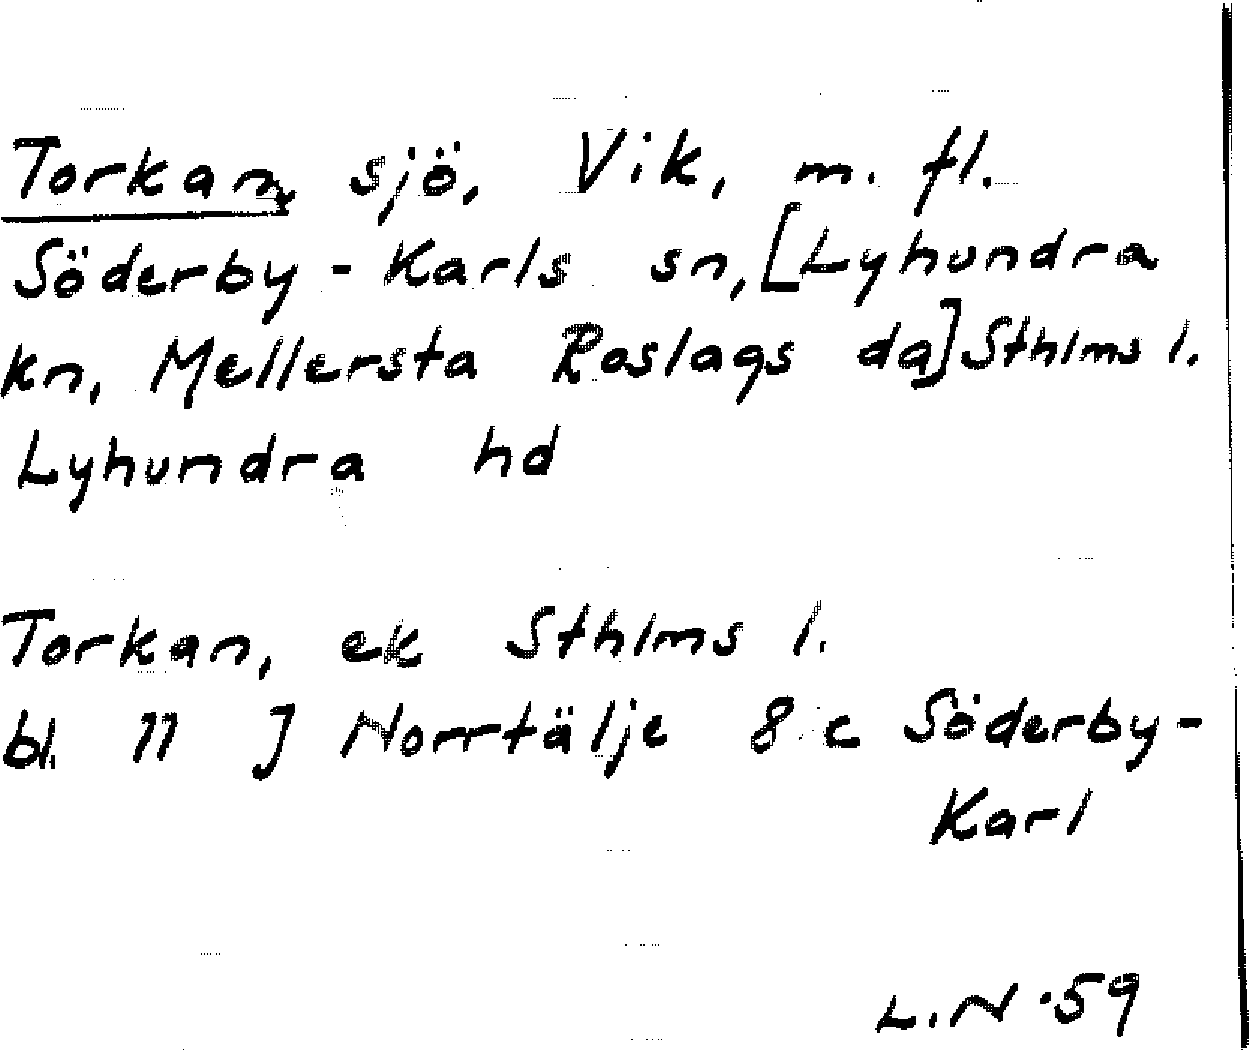 Torkan, sjö, Vik, m. fl.
Söderby-Karls sn, [Lyhundra
kn, Mellersta Roslags da] Sthlms l.
Lyhundra hd
Torkan, ek Sthlms l.
bl. 11 J Norrtälje 8 c Söderby-
Karl
L.N. 59